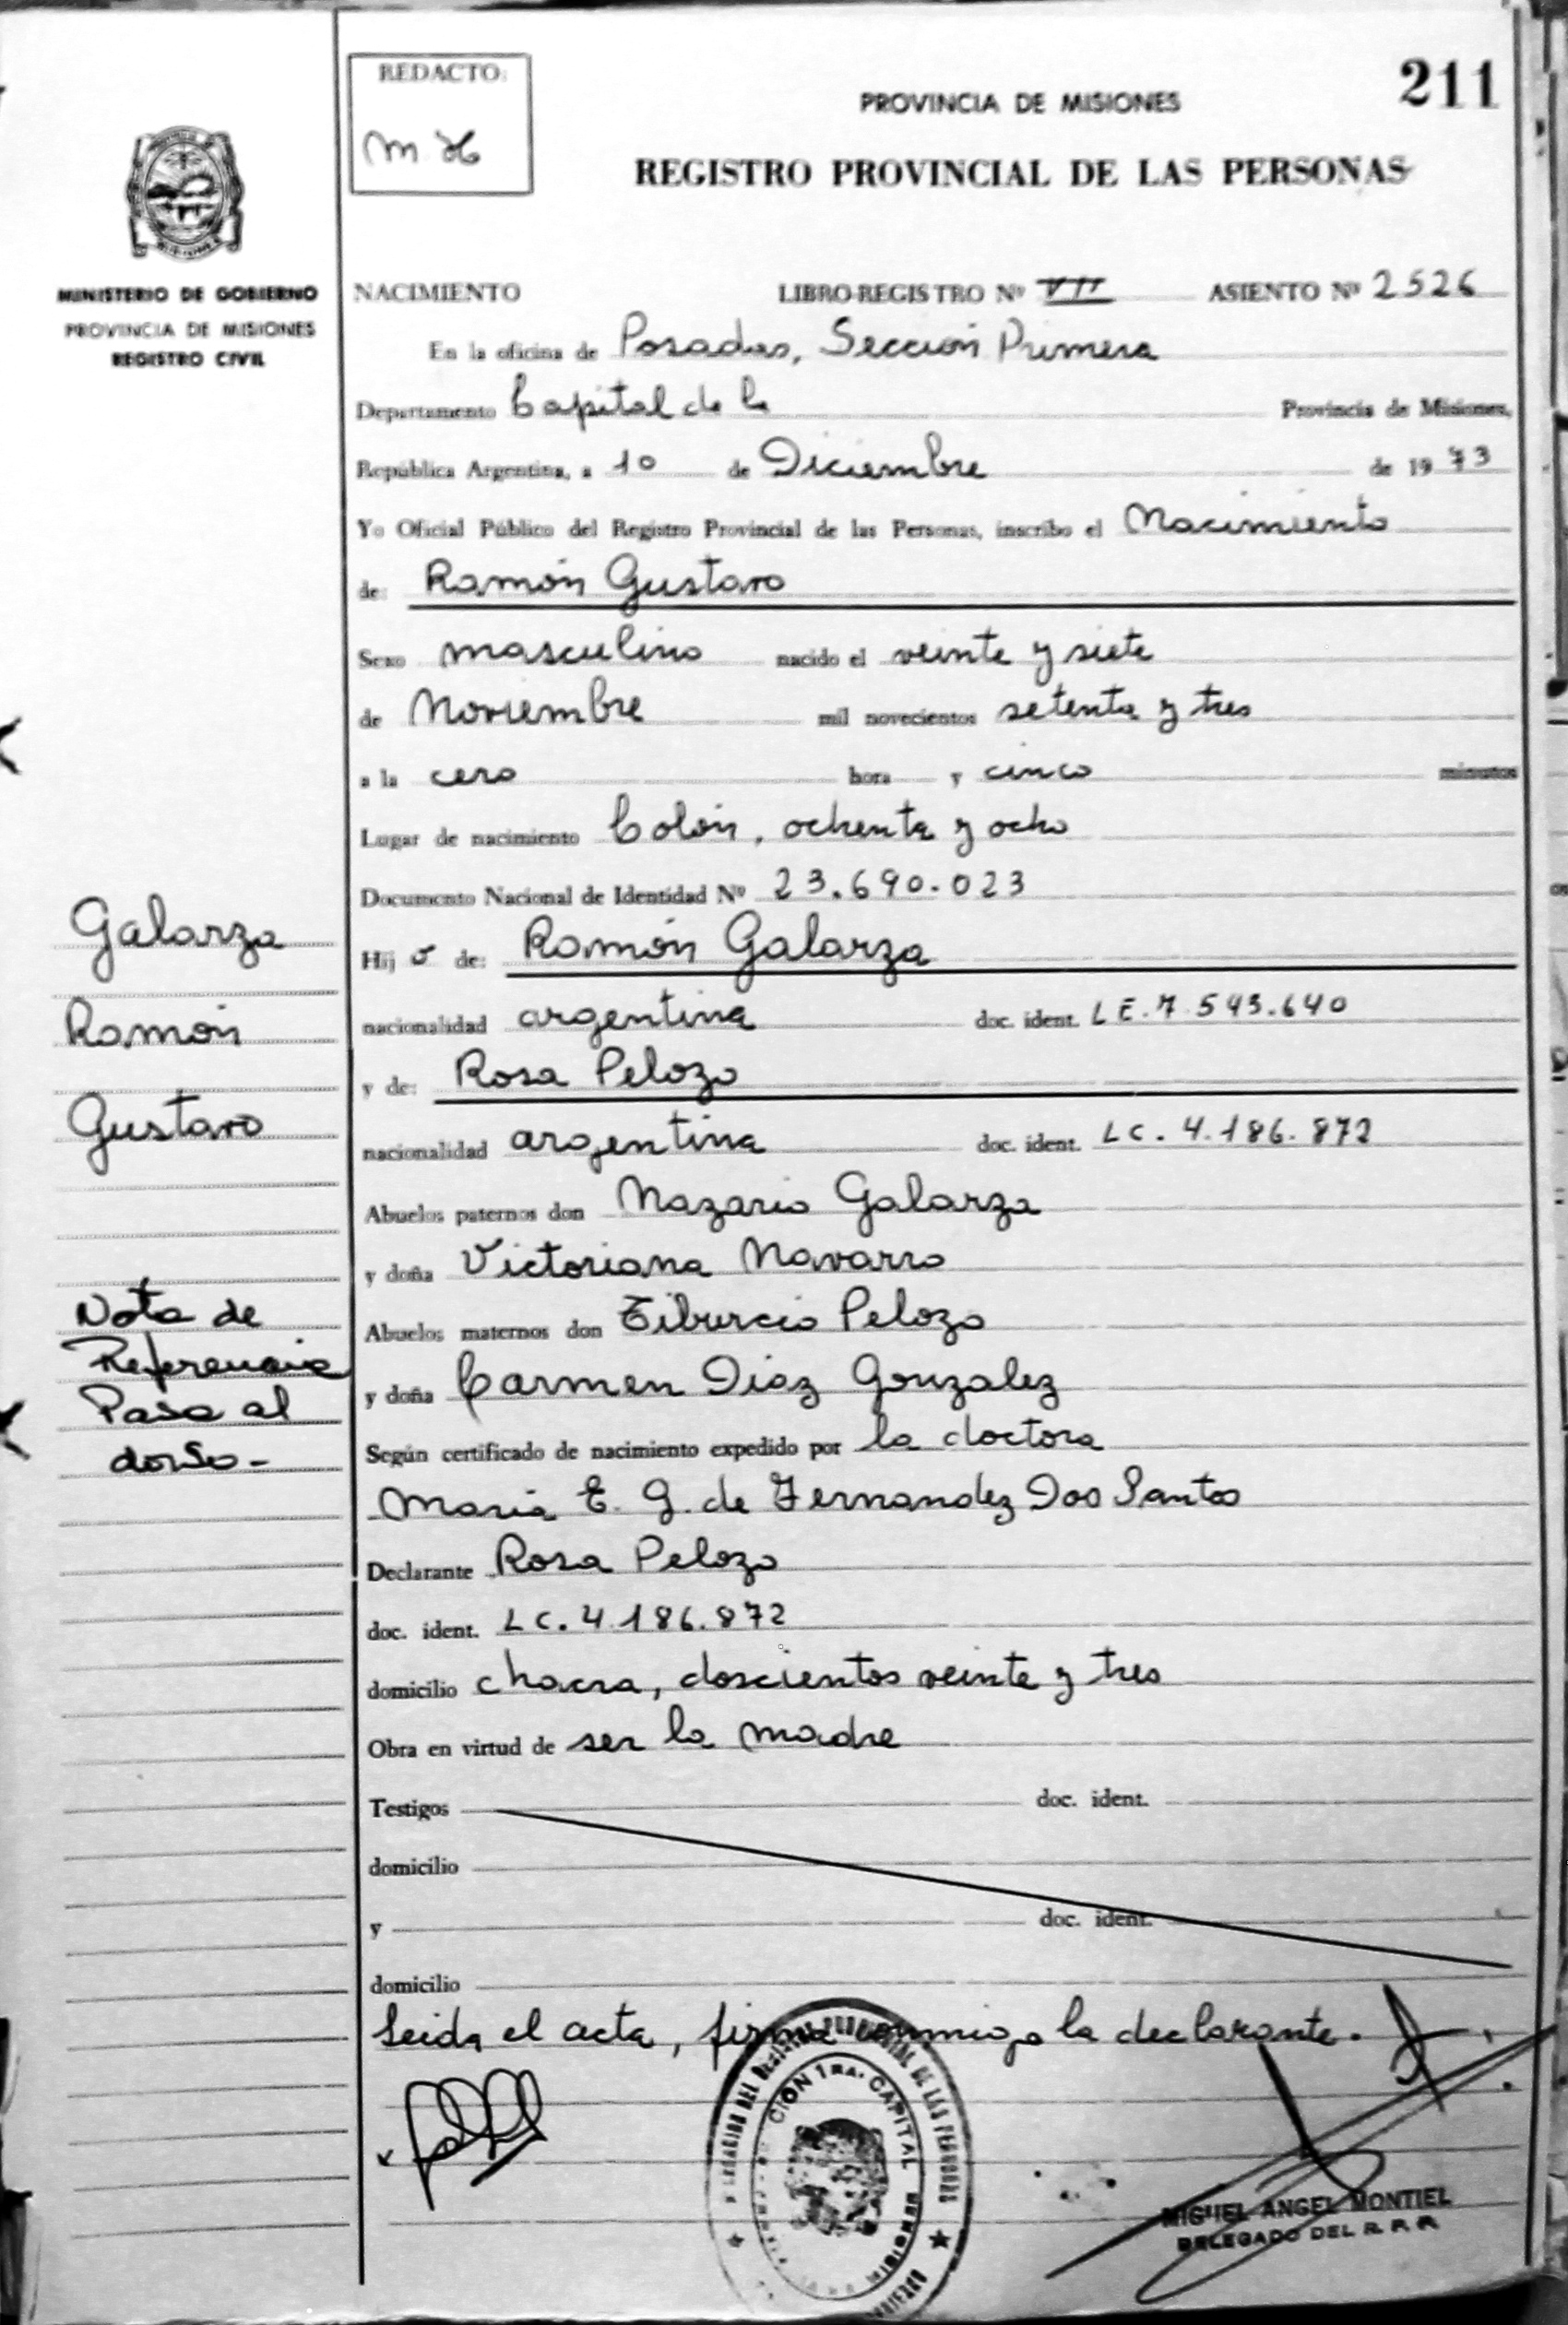 211
REDACTO:
M. H
PROVINCIA DE MISIONES
REGISTRO PROVINCIAL DE LAS PERSONAS
MINISTERIO DE GOBIERNO
PROVINCIA DE MISIONES
REGISTRO CIVIL
NACIMIENTO LIBRO-REGISTRO Nº VII ASIENTO Nº 2526
En la oficina de Posadas, Sección Primera
Departamento Capital de la Provincia de Misiones,
República Argentina, a 10 de Diciembre de 1973
Yo Oficial Público del Registro Provincial de las Personas, inscribo el Nacimiento
de: Ramón Gustavo
Sexo masculino nacido el veinte y siete
de Noviembre mil novecientos setenta y tres
a la cero hora y cinco minutos
Lugar de nacimiento Colón, ochenta y ocho
Documento Nacional de Identidad Nº 23.690.023
Hijo de: Ramón Galarza
nacionalidad argentina doc. ident. LE. 7.543.640
y de: Rosa Pelozo
nacionalidad argentina doc. ident. LC. 4.186.872
Abuelos paternos don Nazario Galarza
y doña Victoriana Navarro
Abuelos maternos don Tiburcio Pelozo
y doña Carmen Diaz Gonzalez
Según certificado de nacimiento expedido por la doctora
Maria E. G. de Fernandez Dos Santos
Declarante Rosa Pelozo
doc. ident. LC. 4.186.872
domicilio chacra, doscientos veinte y tres
Obra en virtud de ser la madre
Testigos doc. ident.
domicilio
y doc. ident.
domicilio
Leida el acta, firma conmigo la declarante.
Galarza
Ramón
Gustavo
Nota de
Referencia
Pasa al
dorso-
CION 1RA. CAPITAL
MIGUEL ANGEL MONTIEL
DELEGADO DEL R. P. P.